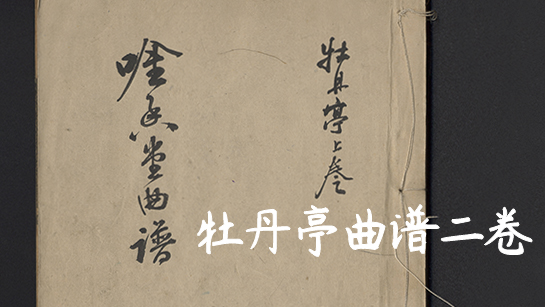 牡丹亭上卷
唫香堂曲譜
牡丹亭曲谱二卷